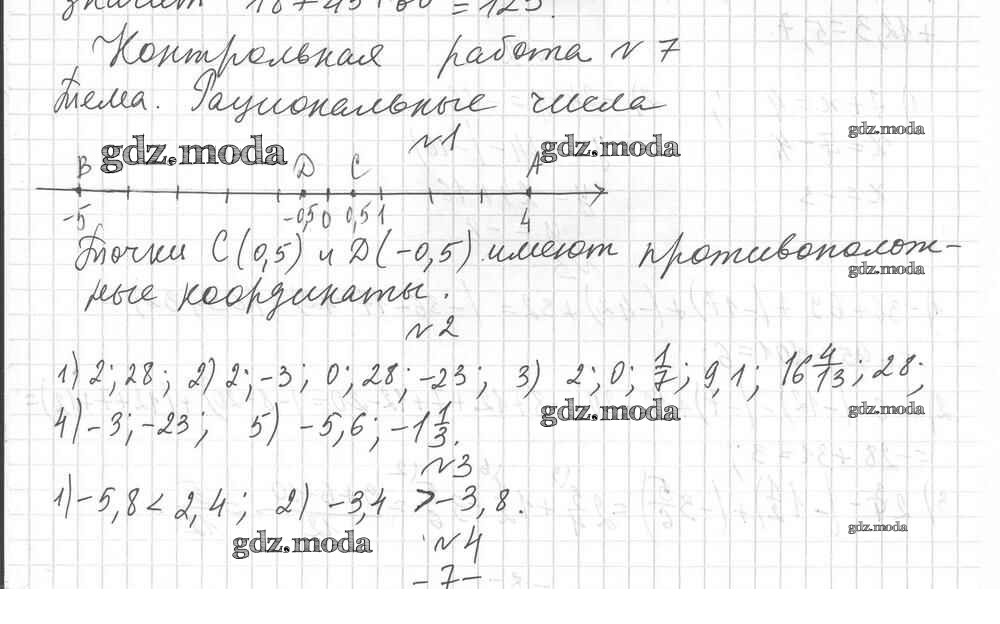 значит 18+45+60=123.
Контрольная работа №7
Тема. Рациональные числа
№1
gdz.moda gdz.moda gdz.moda
B D C A
-5 -0,5 0 0,5 1 4
Точки C(0,5) и D(-0,5) имеют противополож-
gdz.moda
ные координаты.
№2
1) 2; 28; 2) 2; -3; 0; 28; -23; 3) 2; 0; 1/7; 9,1; 16 4/13; 28;
gdz.moda gdz.moda
4) -3; -23; 5) -5,6; -1 1/3.
№3
1) -5,8 < 2,4; 2) -3,4 > -3,8.
gdz.moda gdz.moda
№4
-7-